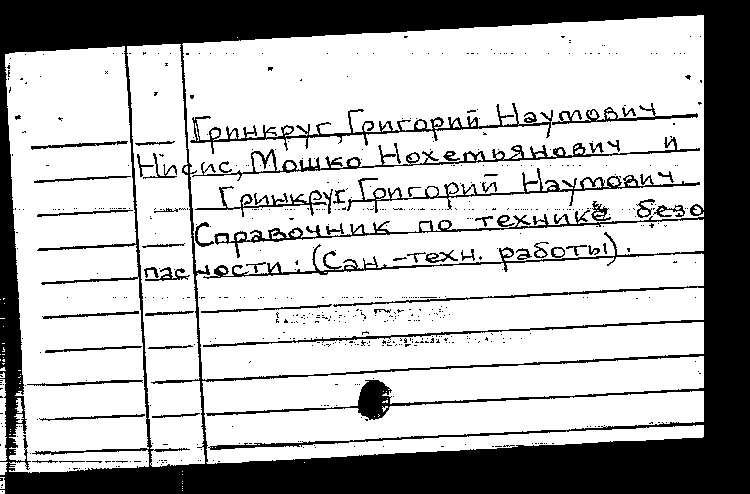 Гринкруг, Григорий Наумович
Нисис, Мошко Нохемьянович и
Гринкруг, Григорий Наумович.
Справочник по технике безо
пасности: (Сан.-техн. работы).